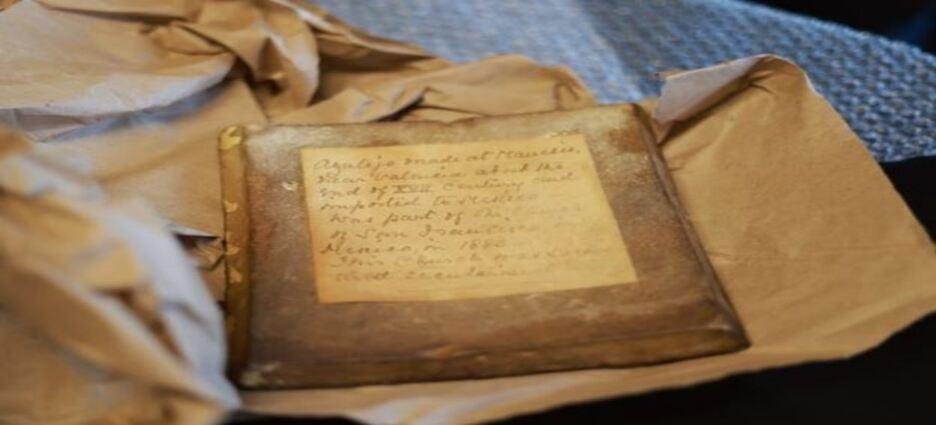 Azulejo made at Manises,
near Valencia about the
end of XVII Century and
imported to Mexico
was part of the
of San Francisco
Mexico, in 18
This Church was
and